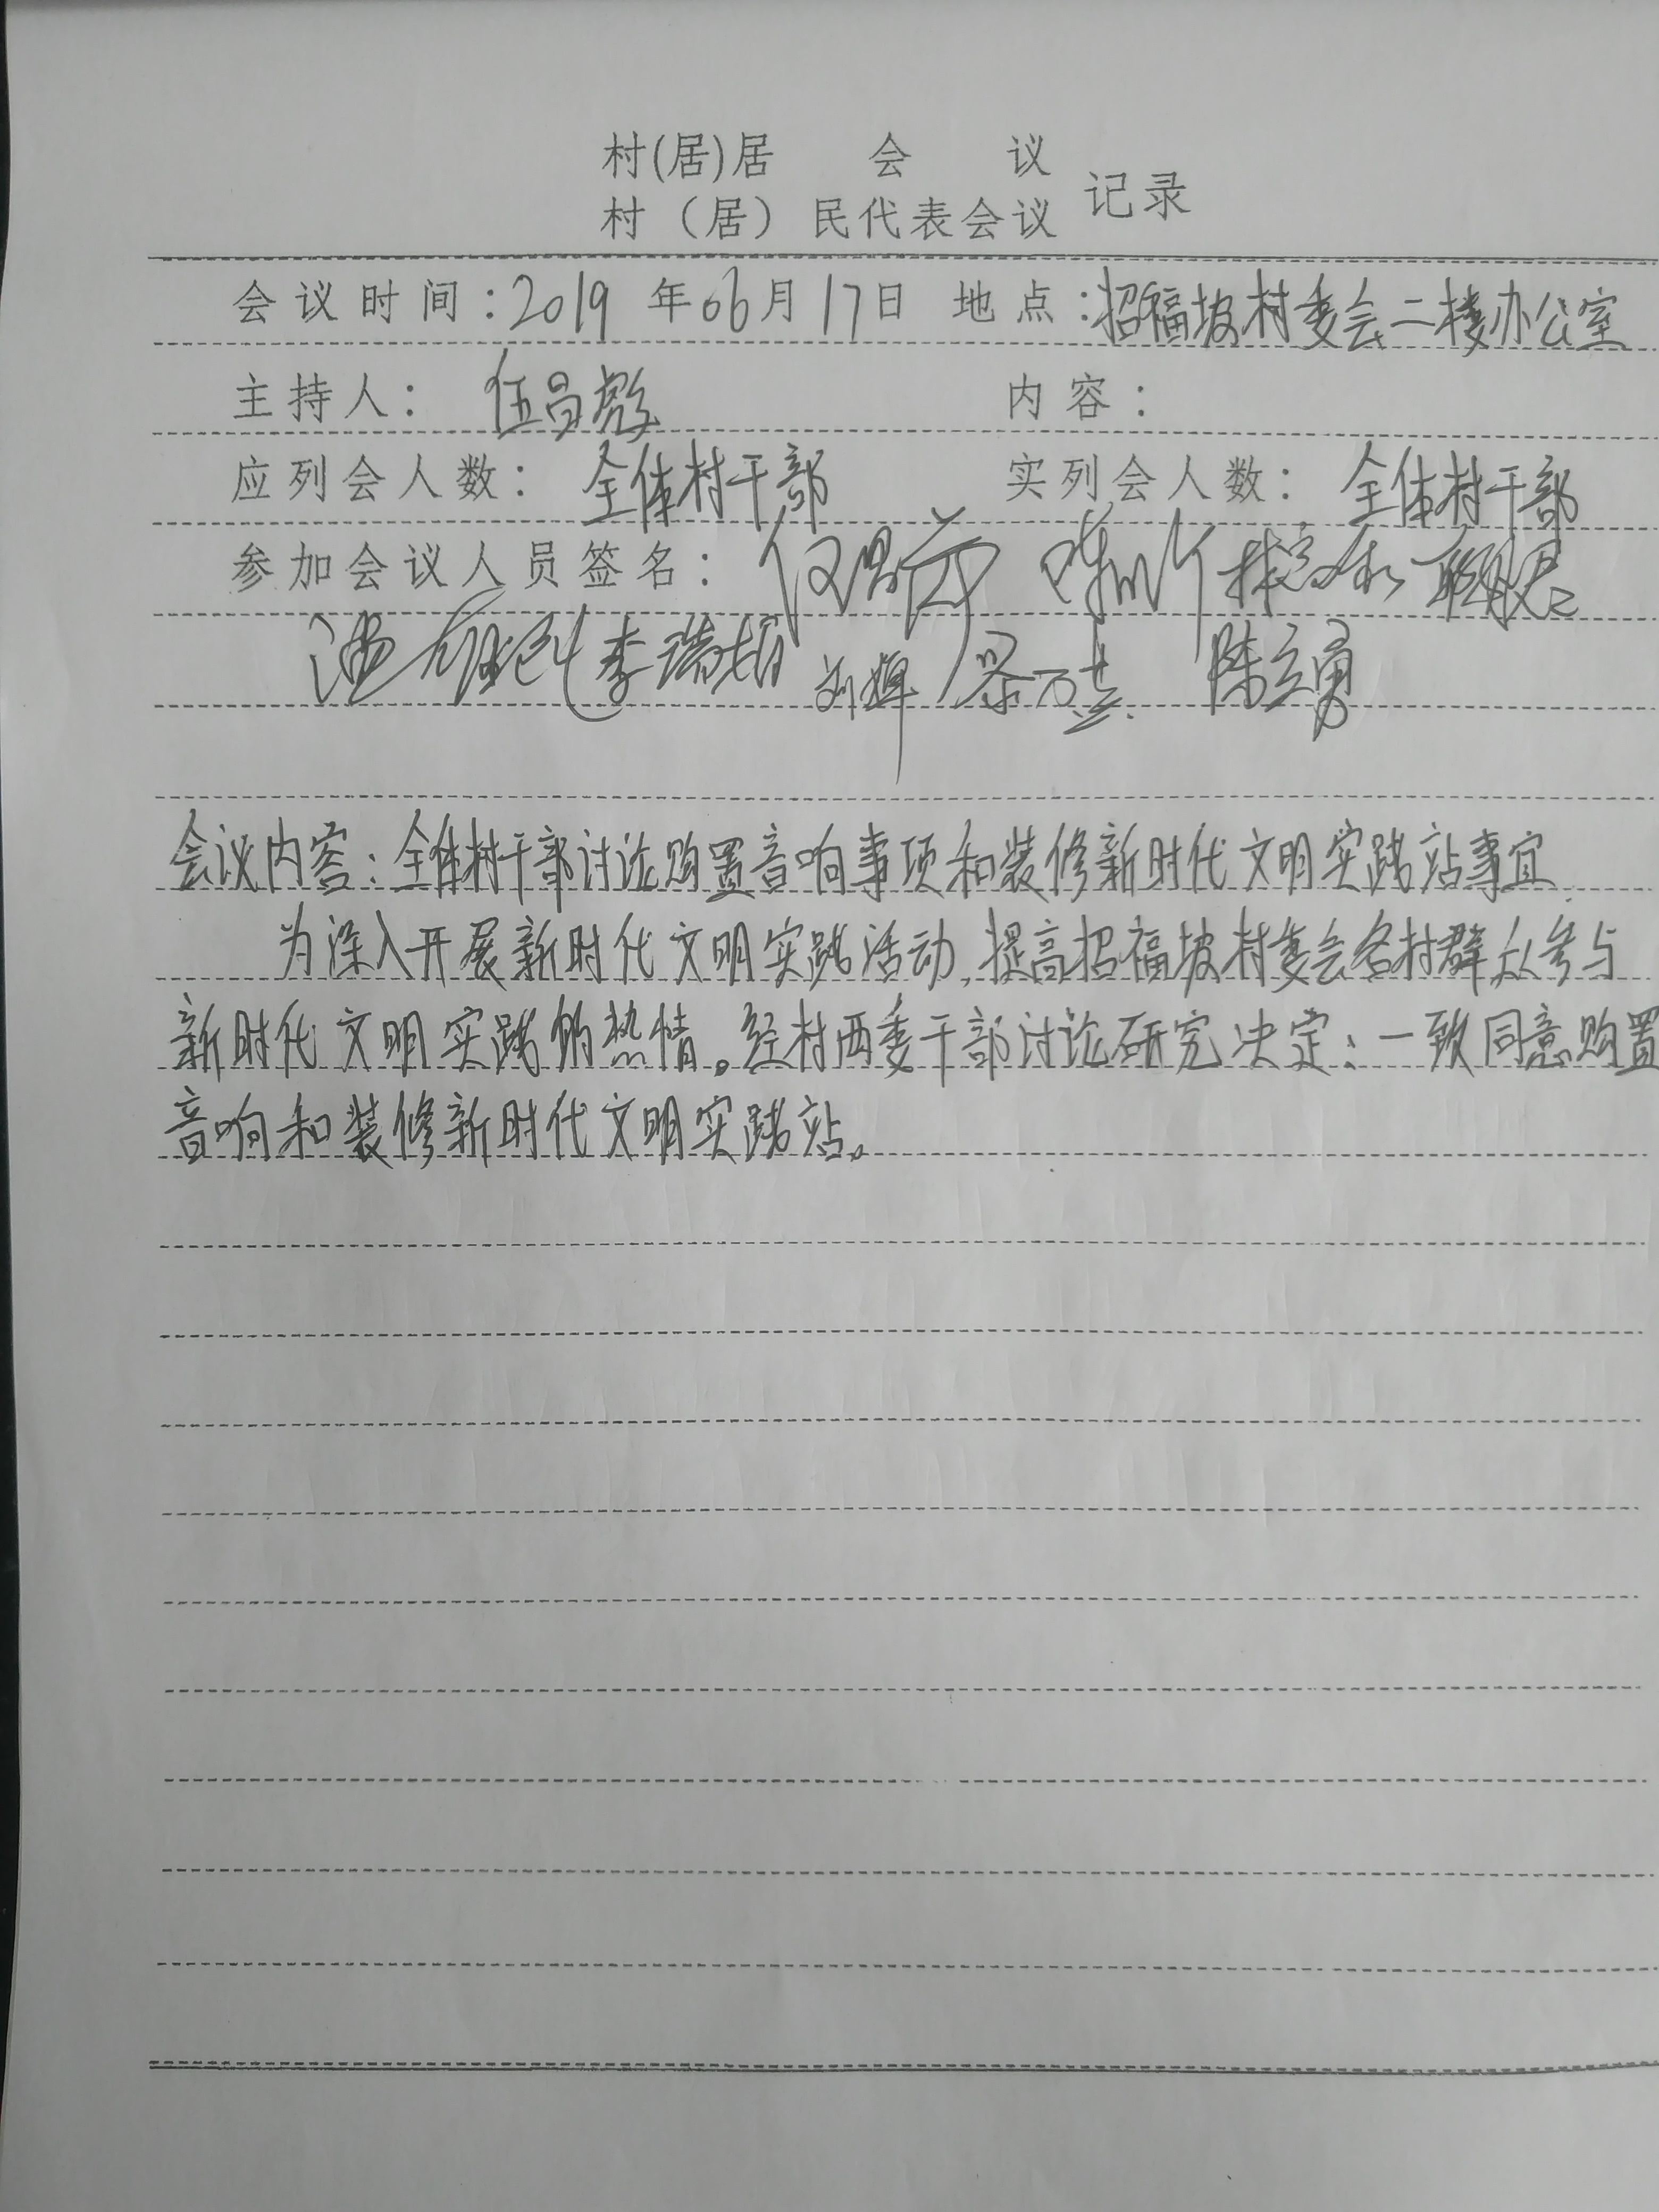 村(居)居 会 议
记录
村（居）民代表会议
会议时间：2019 年06月17日 地点：招福坡村委会二楼办公室
主持人： 伍昌彪 内容：
应列会人数： 全体村干部 实列会人数： 全体村干部
参加会议人员签名：
李瑞娟 刘婵 陈立勇
会议内容：全体村干部讨论购置音响事项和装修新时代文明实践站事宜.
为深入开展新时代文明实践活动，提高招福坡村委会各村群众参与
新时代文明实践的热情。经村两委干部讨论研究决定：一致同意购置
音响和装修新时代文明实践站。